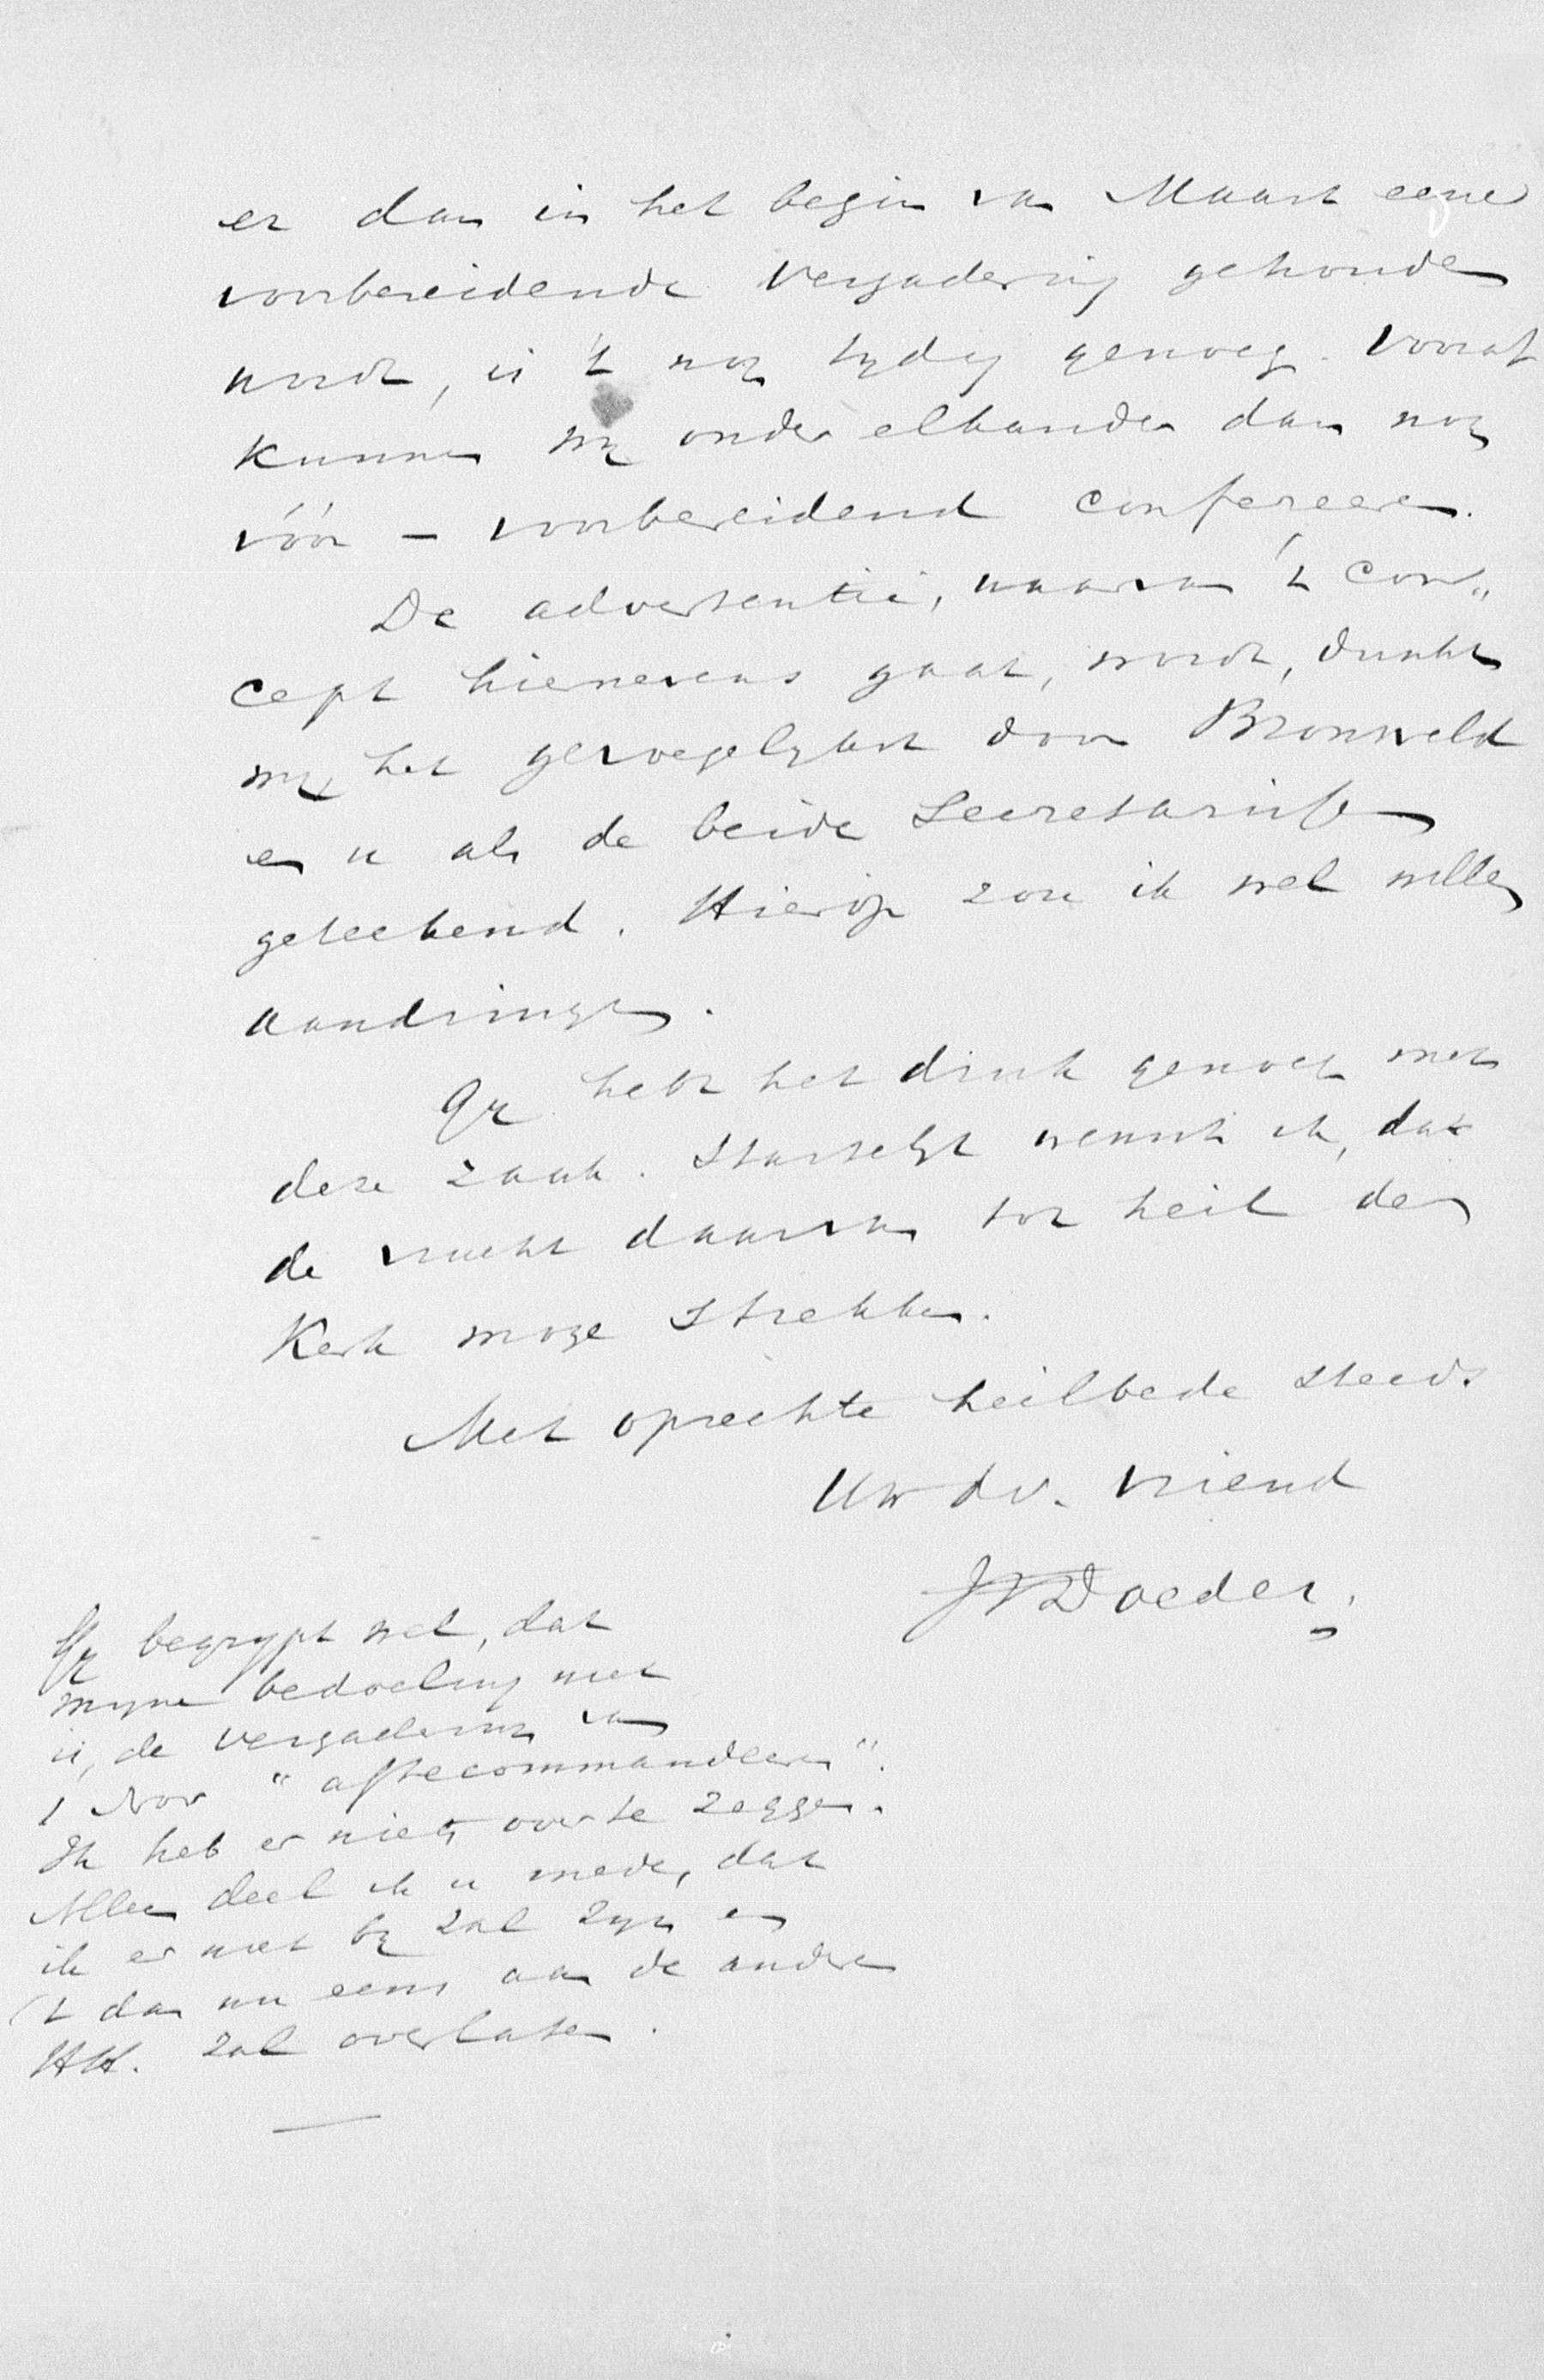 er dan in het begin van Maart eene
voorbereidende Vergadering gehouden
wordt, is 't nog tydig genoeg. Vooraf
kunnen wy onder elkander dan nog
vóór - voorbereidend confereeren.
De advertentie, waarvan 't con„
cept hiernevens gaat, wordt, dunkt
my het gevoegelykst door Bronsveld
en u als de beide Secretarissen
geteekend. Hierop zou ik wel willen
aandringen.
Gy hebt het druk genoeg met
deze zaak. Hartelyk wensch ik, dat
de vrucht daarvan tot heil der
Kerk moge strekken.
Met oprechte heilbede steeds
Uw dv. vriend
JIDoedes.
Gy begrypt wel, dat
myne bedoeling niet
is, de vergadering van
1 Nov "aftecommandeeren".
Ik heb er niets over te zeggen.
Alleen deel ik u mede, dat
ik er niet by zal zyn en
't dan nu eens aan de andere
HH. zal overlaten.